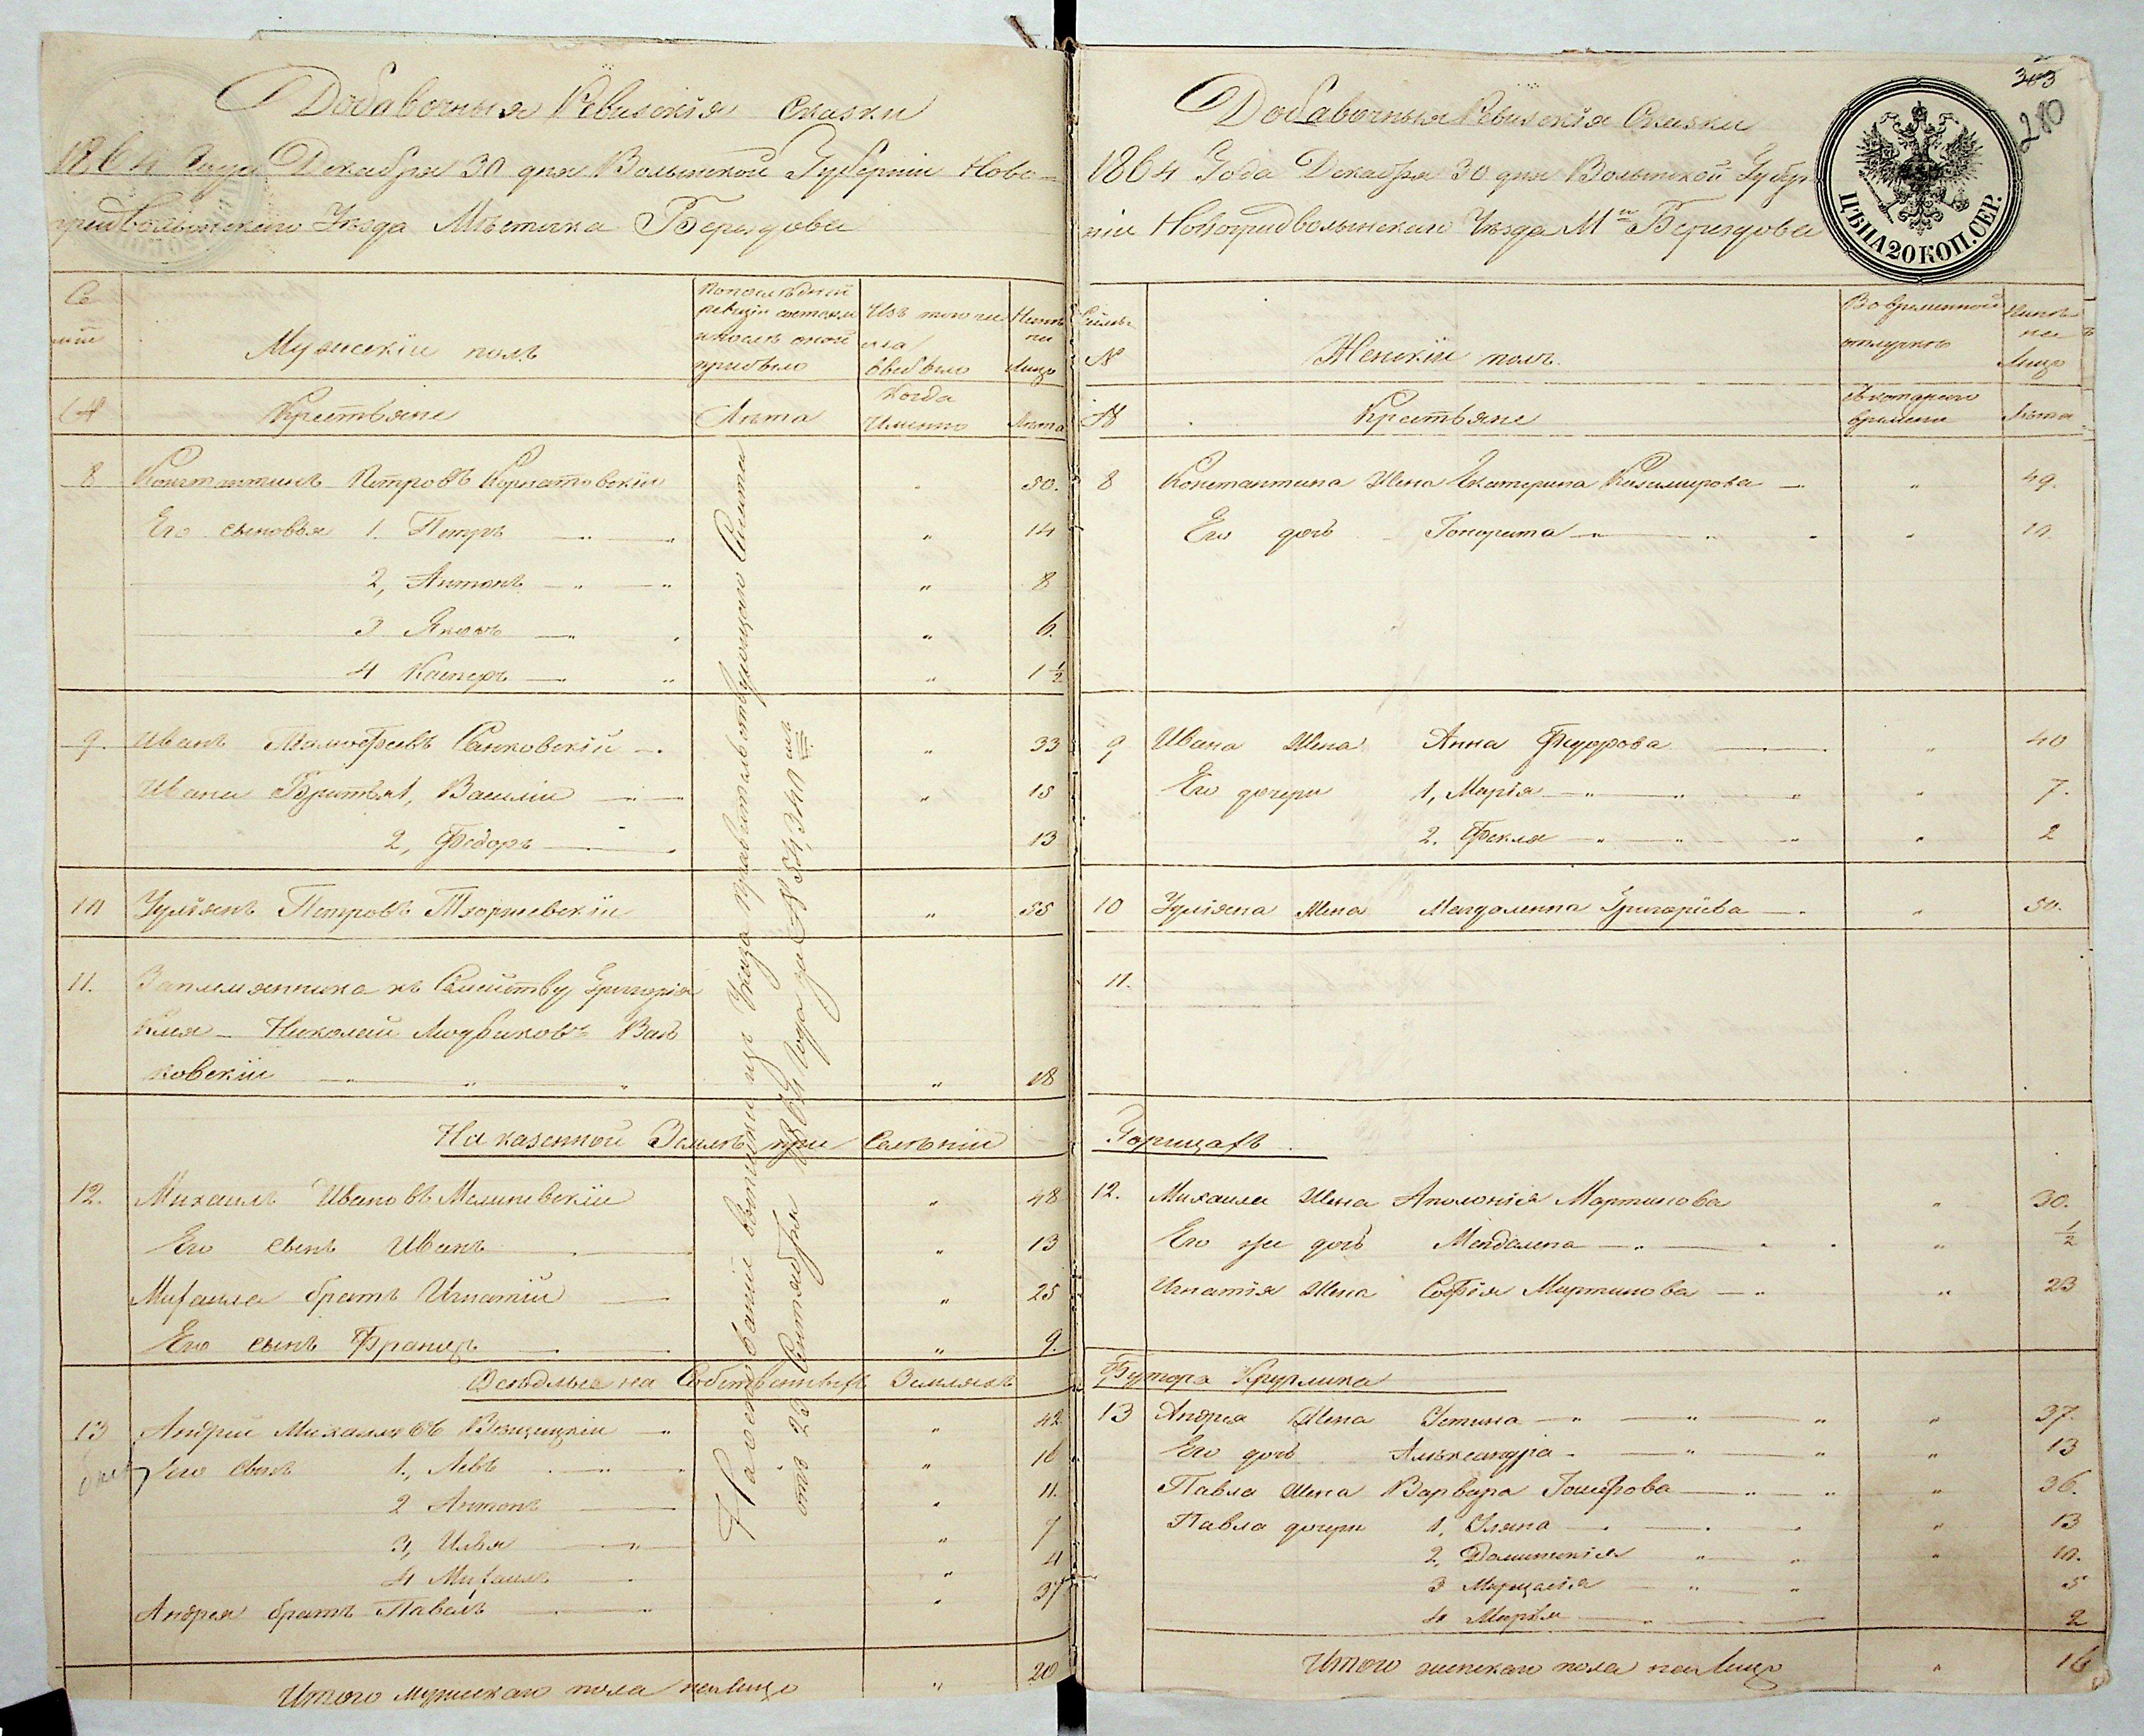 Добавочныя Ревизскія Сказки
1864 Года Декабря 30 дня Волынской Губерніи Ново-
градволынскаго Уѣзда Мѣстечка Берездова
Се
мьи
Мужескій полъ
По последней
ревизіи состояло
и после оной
прибыло
Изъ того чи
сла
выбыло
Ныне
на
лицо
№
Крестьяне
Лѣта
Когда
Именно
Лѣта
8 Константинъ Петровъ Корнатовскій " 50.
Его сыновья 1. Петръ " 14
2, Антонъ " 8
3 Яковъ " 6.
4 Каспер " 1 1/2
9. Иванъ Тимофеевъ Санковскій " 33
Ивана Братья 1, Василій " 15
2, Федоръ 13
10 Іуліянъ Петровъ Тхоржевскій " 55
11. Въ племянника къ Семейству Григорія
Николай Людвиковъ Вал
ковскій " 18
На казенной Землѣ при Селѣніи
12. Михаилъ Ивановъ Малиневскій " 48
Его сынъ Иванъ " 13
Михаила братъ Игнатій " 25
Его сынъ Францъ " 9.
Оседлые на Собственныхъ Земляхъ
13 Андрей Михайловъ " 42
Его сынъ 1., Левъ " 16
2 Антонъ " 11.
3, Илья " 7
4 Михаилъ " 4
Андрея братъ Павелъ " 37
Итого мужескаго пола налицо " 20
На основаніи Указа Правительствующаго Сената
отъ 23 Сентября 1864 Года за № 54,340 мъ
303
280
Добавочныя Ревизскія Сказки
1864 Года Декабря 30 дня Волынской Губер
ніи Новоградволынскаго Уѣзда Мка Берездова
ЦѢНА 20 КОП. СЕР.
№
Женскій полъ.
Во временной
отлучке
Ныне
на
Лицо
№
Крестьяне
Съ котораго
времени
Лѣта
8 Константина Жена Екатерина Казимирова " 49.
Его дочь Гонората " 10.
9 Ивана Жена Анна Федорова " 40
Его дочери 1, Марія " 7.
2. Фекля " 2
10 Іуліяна Жена Магдаленна Григоріева " 50.
11.
Горицахъ
12. Михаила Жена Аполонія Мартинова " 30.
Его же дочь Магдалена " 1/2
Игнатія Жена Софія Мартинова " 23
Футора Круглика
13 Андрея Жена Устина " 37.
Его дочь Александра " 13
Павла Жена Варвара Іосифова " 36.
Павла дочери 1, Уляна " 13
2, Доминикія " 10.
3 " 5
4 Марія 2
Итого женскаго пола налицо " 16